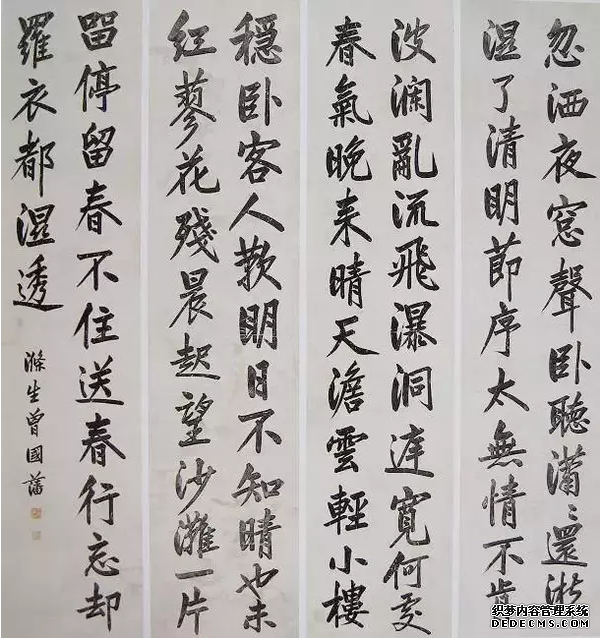 忽洒夜窓聲卧聽瀟〻還淅
濕了清明節序太無情不肯
波澜亂流飛瀑洞庭寬何處
春氣晚来晴天澹雲輕小樓
穩卧客人歎明日不知晴也未
红蓼花殘晨起望沙灘一片
畱停留春不住送春行忘却
羅衣都濕透
滌生曾國藩
织梦内容管理系统
DEDECMS.COM